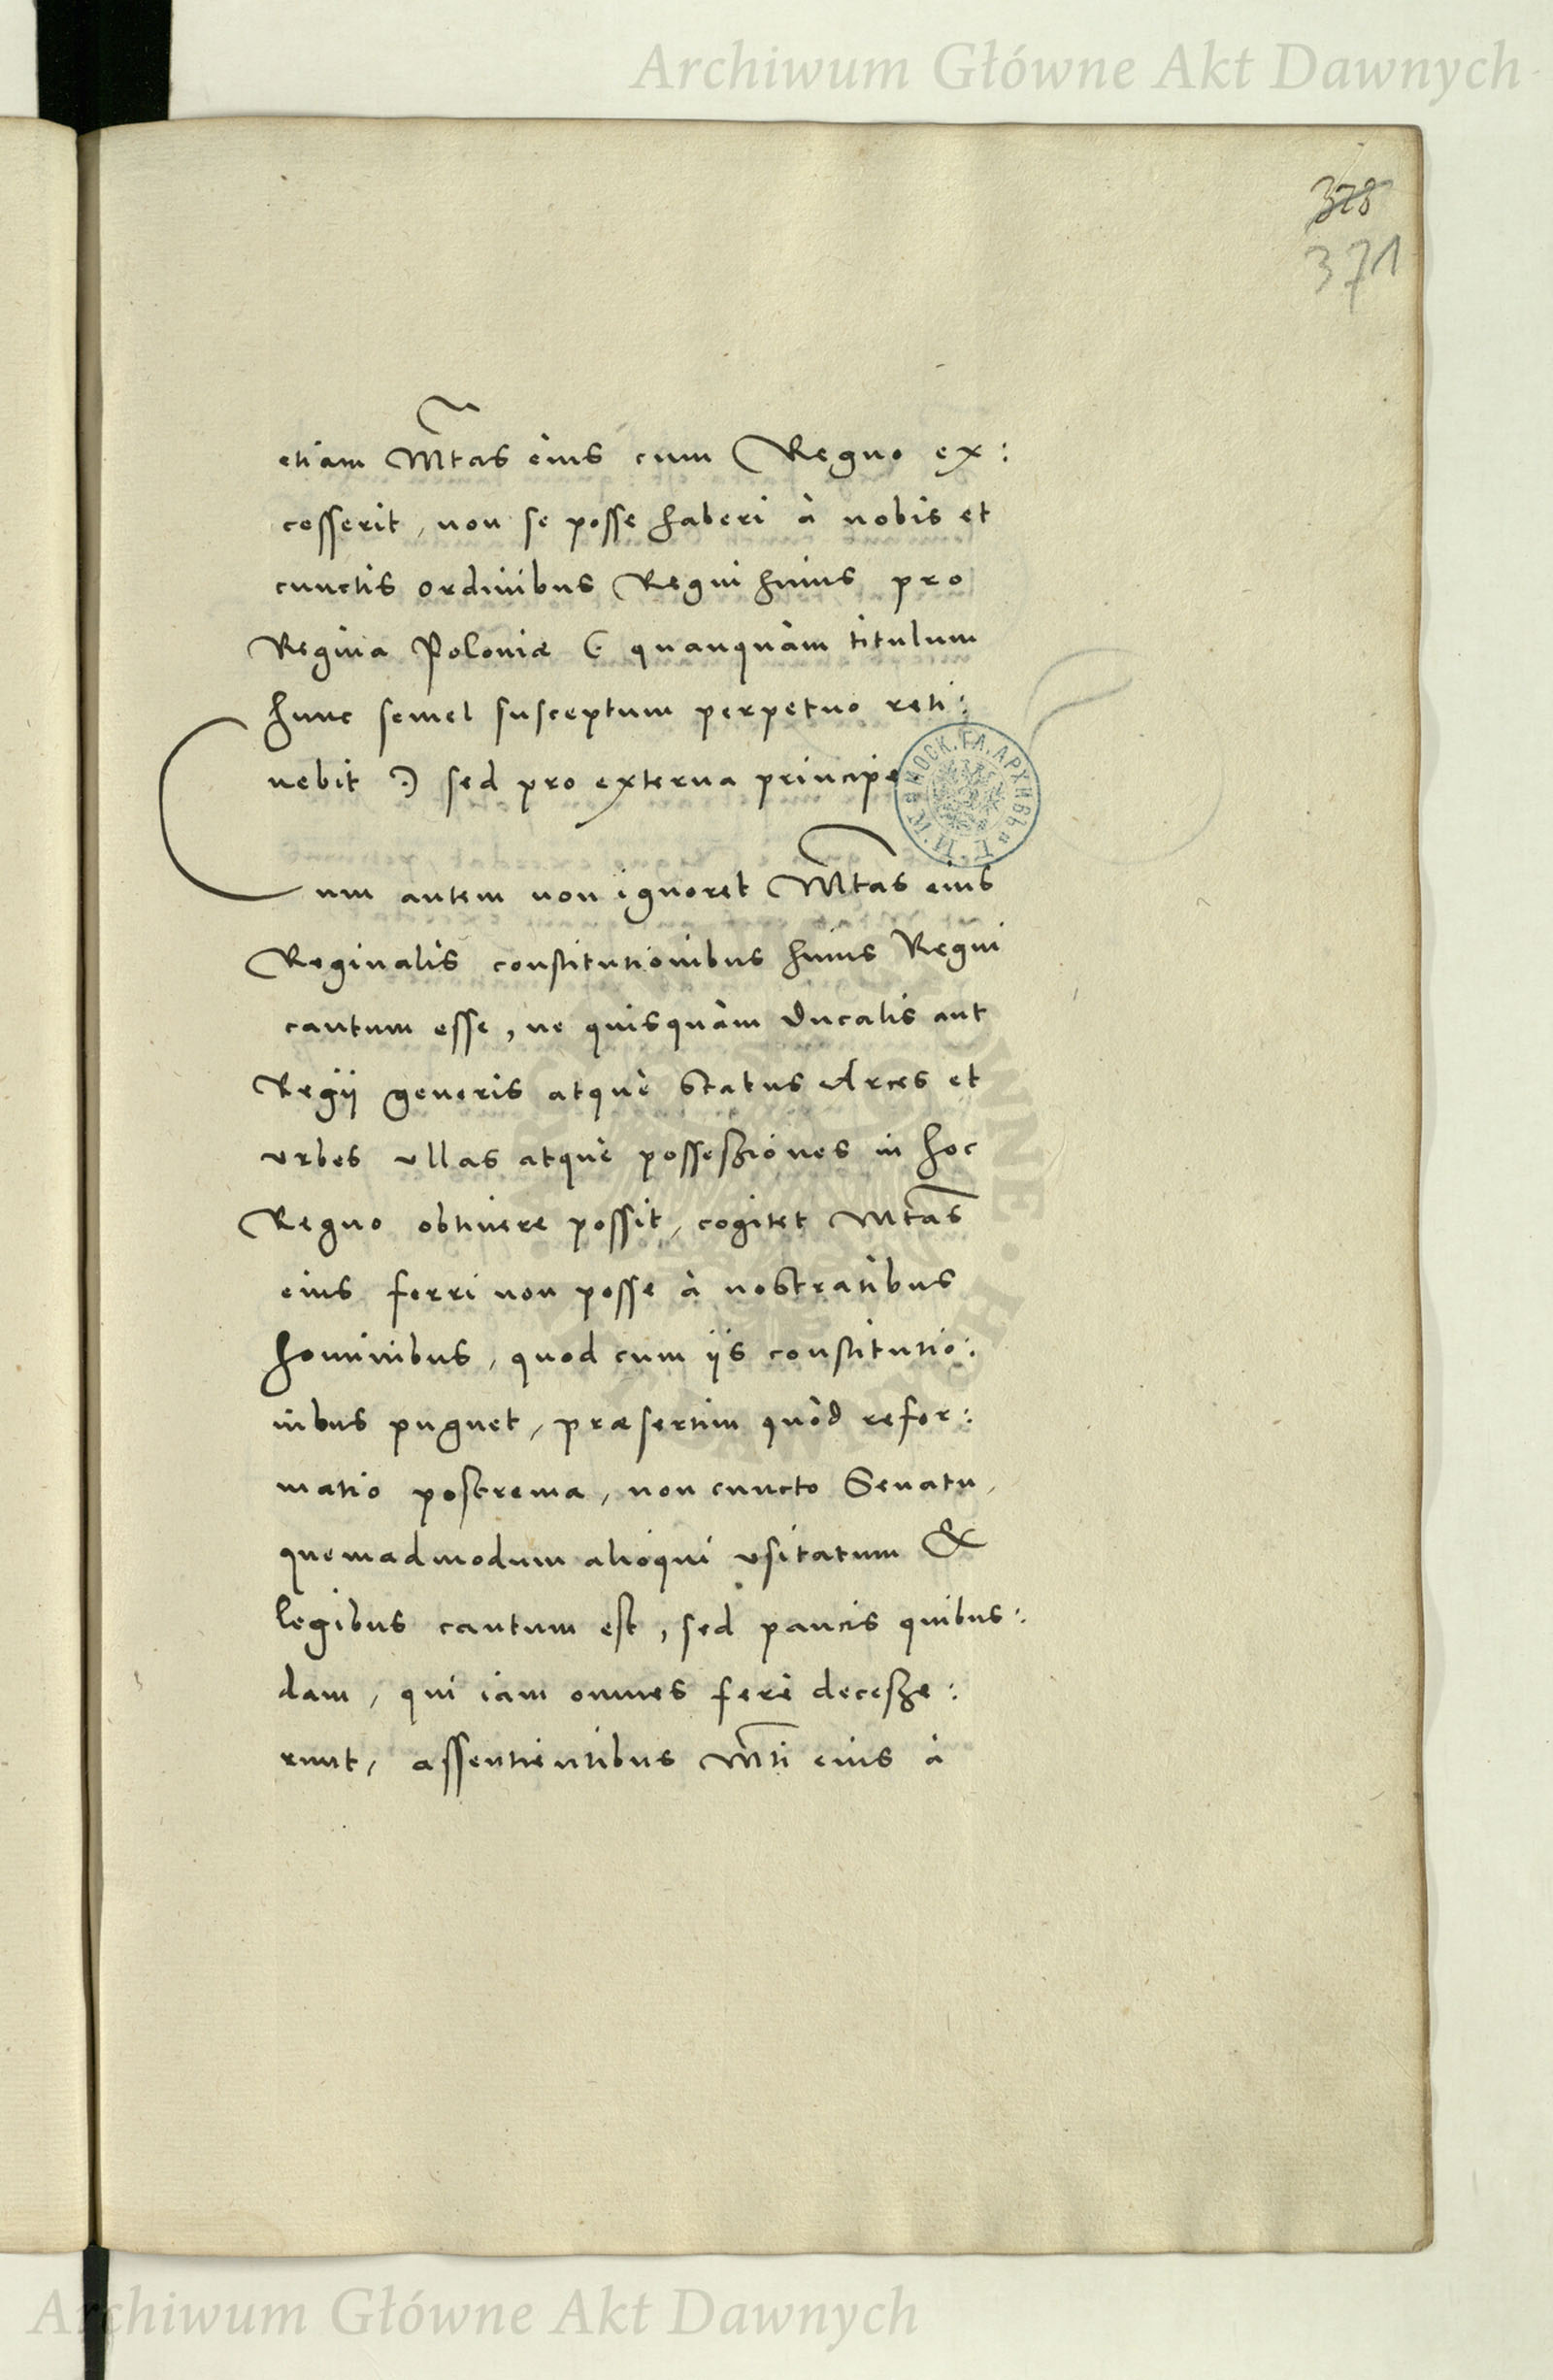 Archiwum Główne Akt Dawnych
328
371
etiam Mtas eius cum Regno ex:
cesserit, non se posse haberi à nobis et
cunctis ordinibus Regni huius pro
Regina Poloniæ ( quanquàm titulum
hunc semel susceptum perpetuo reti:
nebit ) sed pro externa principe
Cum autem non ignoret Mtas eius
Reginalis constitutionibus huius Regni
cautum esse, ne quisquàm Ducalis aut
Regij generis atque status Arces et
vrbes vllas atque possessiones in hoc
Regno obtinere possit, cogitet Mtas
eius ferri non posse à nostratibus
hominibus, quod cum ijs constitutio:
nibus pugnet, præsertim quòd refor:
matio postrema, non cuncto Senatu,
quemadmodum alioqui vsitatum &
legibus cautum est, sed paucis quibus:
dam, qui iàm omnes ferè decesse:
runt, assentientibus Mti eius à
Archiwum Główne Akt Dawnych